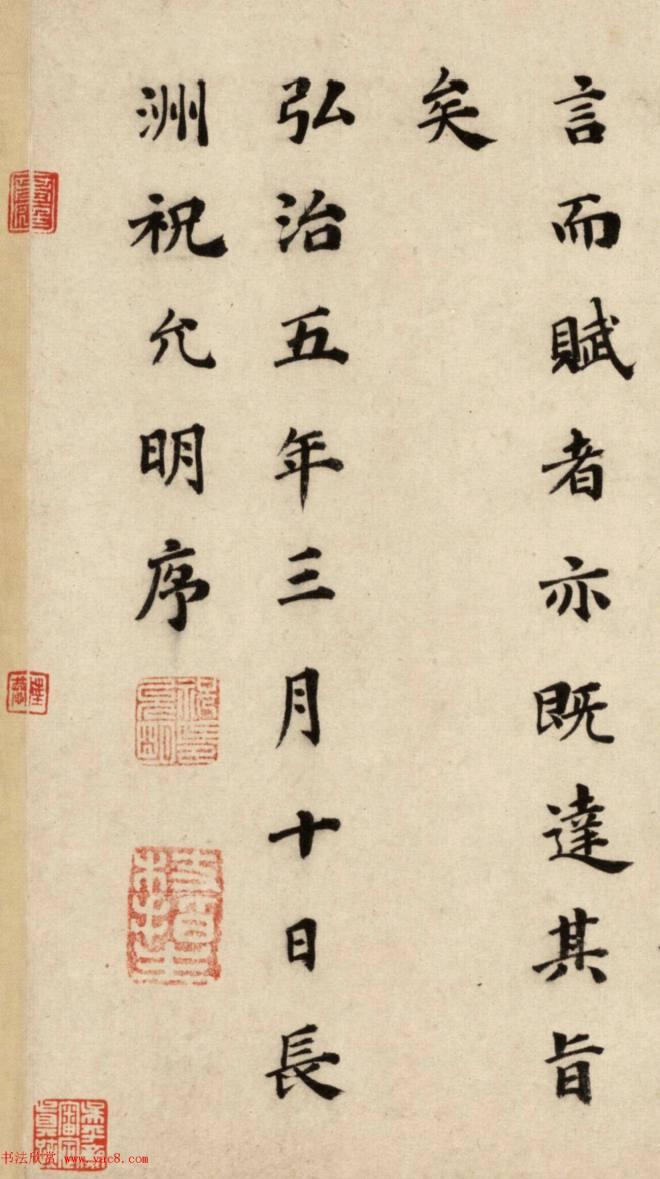 言而賦者亦既達其旨
矣
弘治五年三月十日長
洲祝允明序
書法欣賞 www.yac8.com